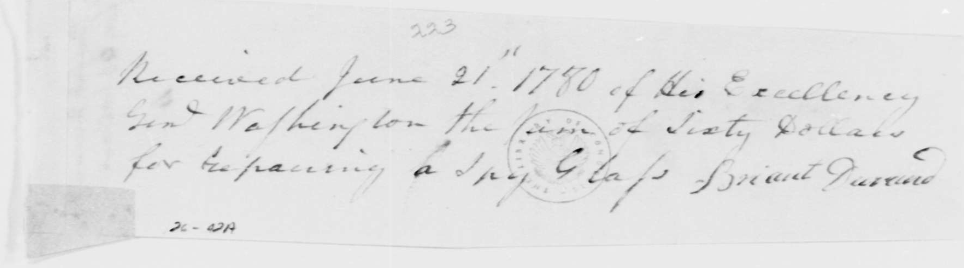 223
Received June 21" 1780 of His Excellency
Genl Washington the Sum of Sixty Dollars
for repairing a Spy Glass Briant Durand
2C-02A